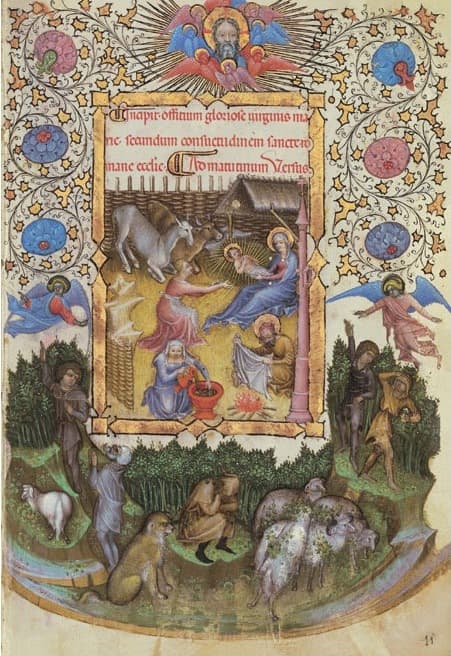 Incipit officium gloriose virginis ma
rie secundum consuetudinem sancte ro
mane ecclie. Ad matutinum Versus
11